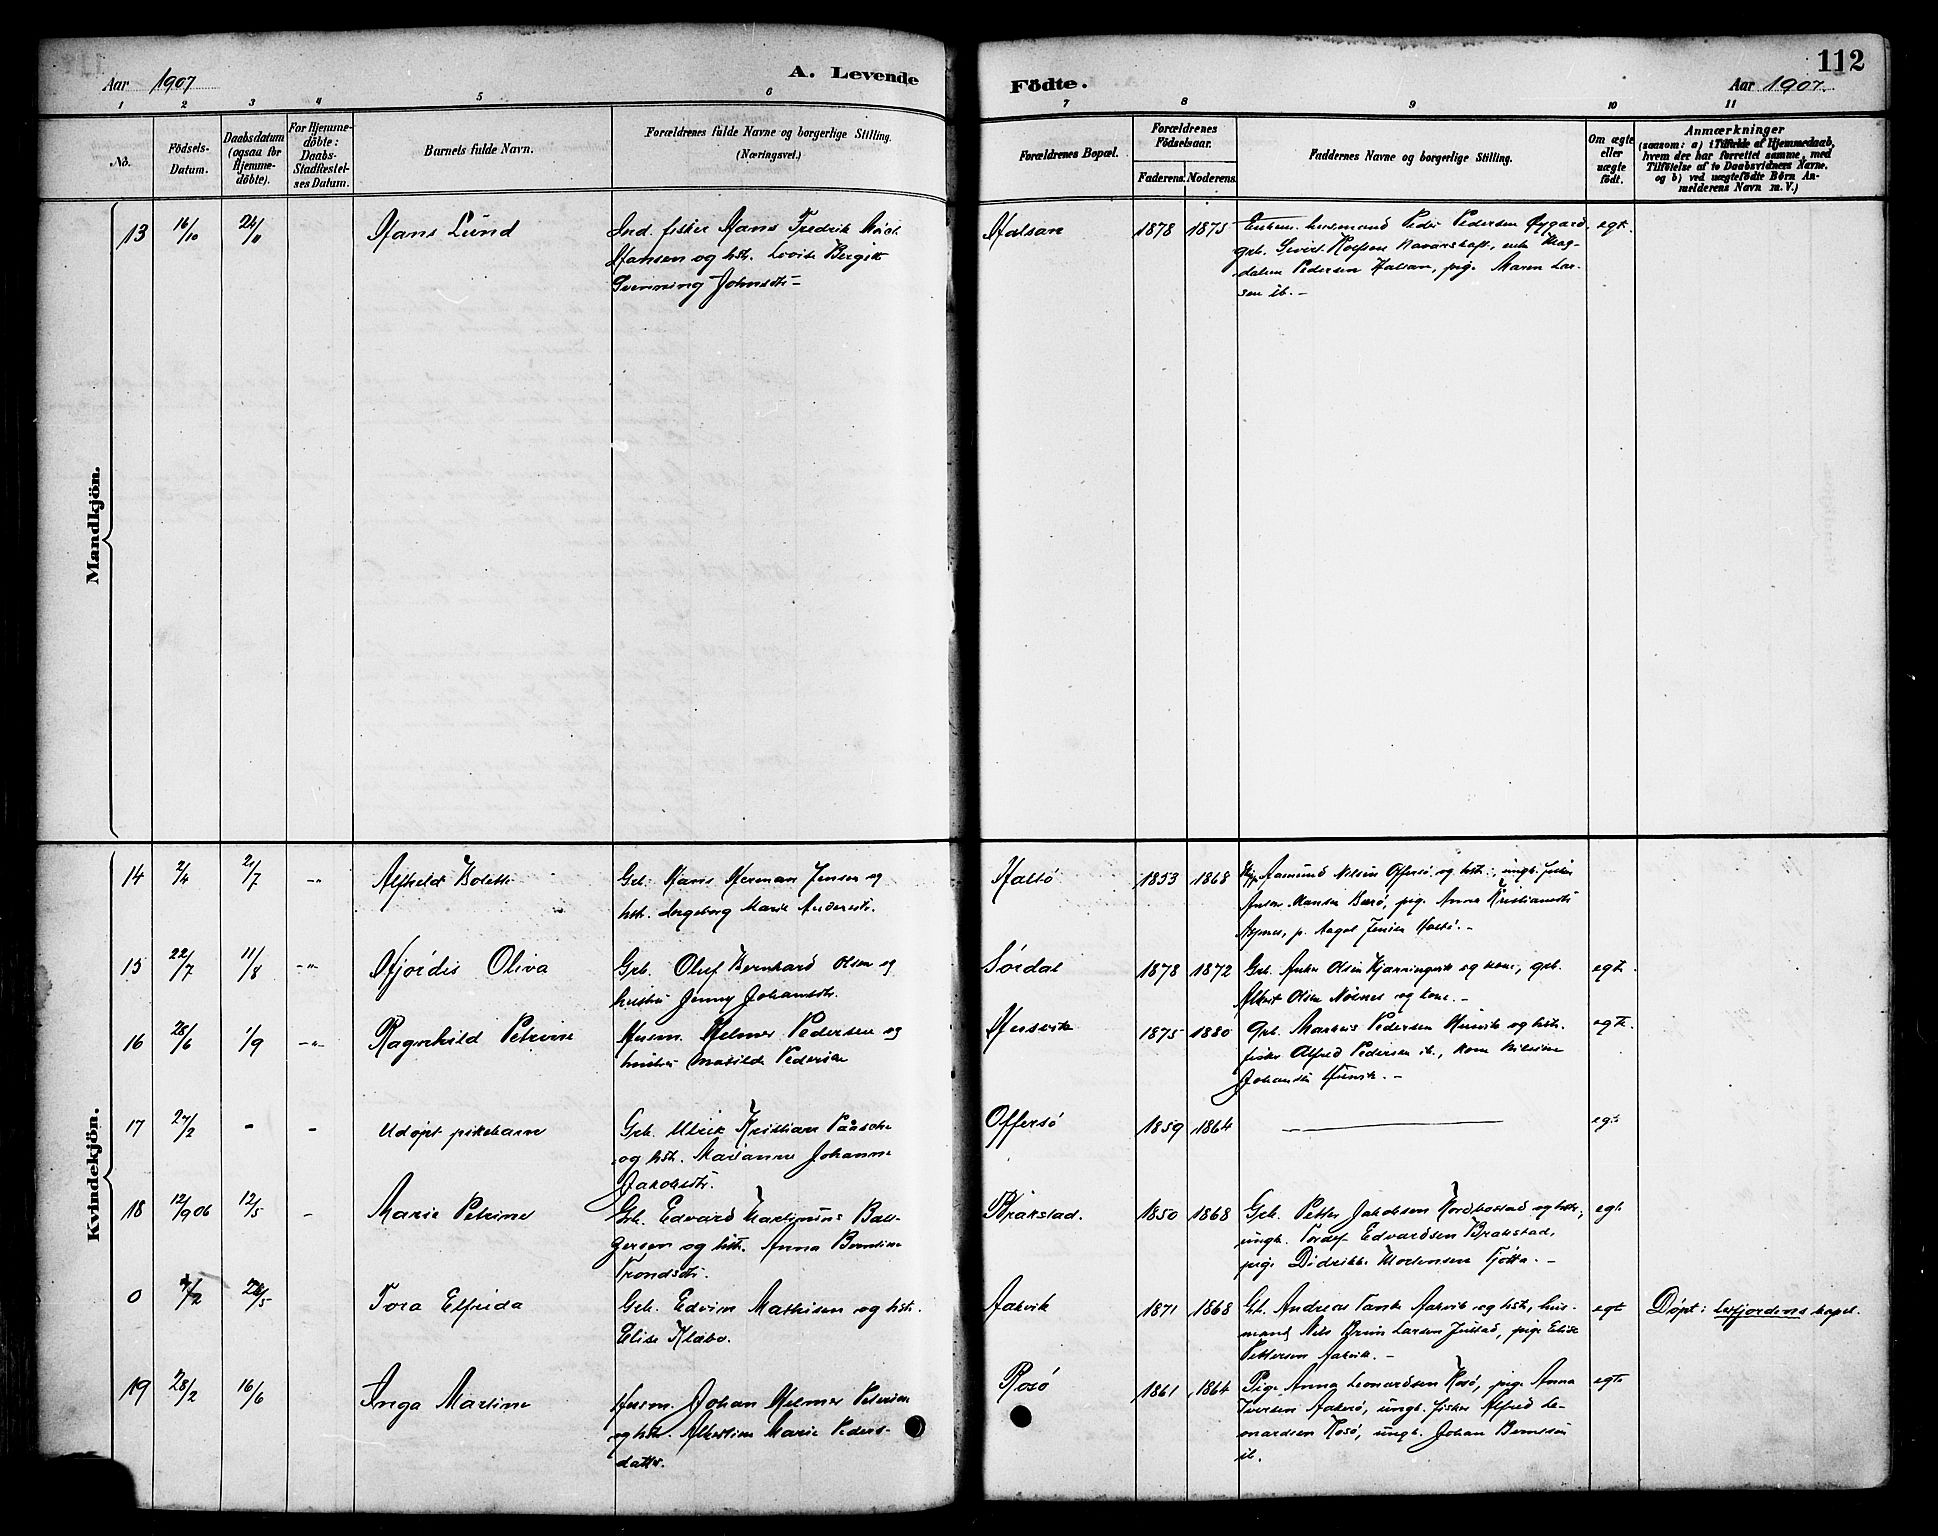 Aar 1907
A. Levende
Födte.
112
Aar 1907.
1 2 3 4 5 6 7 8 9 10 11
No.
Födsels-
Datum.
Daabsdatum
(ogsaa for
Hjemme-
döbte).
For Hjemme-
döbte:
Daabs-
Stadfæstel-
ses Datum.
Barnets fulde Navn.
Forældrenes fulde Navne og borgerlige Stilling.
(Næringsvei.)
Forældrenes Bopæl.
Forældrenes
Födselsaar.
Faderens. Moderens.
Faddernes Navne og borgerlige Stilling.
Om ægte
eller
uægte
födt.
Anmærkninger
(saasom: a) i Tilfælde af Hjemmedaab,
hvem der har forrettet samme, med
Tilföielse af to Daabsvidners Navne.
og b) ved uægtefödte Börn An-
melderens Navn m. V.)
Mandkjön.
13 16/10 24/11 Hans Lund
Ind. fisker Hans Fredrik
Hansen og hstr. Lovise Bergit
Svenning Johnsdtr -
Halsan 1878 1875
Peder Pedersen Øygard,
gbr. Sivert
Pedersen Halsan, pige Maren Lar-
sen ib. -
egt.
Kvindekjön.
14 2/4 21/7 -"- Alfhild Bolette
Gbr. Hans Herman Jensen og
hstr. Ingeborg Marie Andersdtr.
Halsø 1833 1868
Aamund Nilsen Offersø og hstr., ungk. fisker
Anton Hansen Barø, pige Anna Kristiansdtr
p. Aagot Jensen Halsø. -
15 22/7 11/8 -"- Hjørdis Oliva
Gbr. Oluf Bernhard Olsen og
hustru Jenny Johansdtr.
Sørdal 1878 1872
Gbr. Anton Olsen og kone, gbr.
Albert Olsen og kone. -
egt.
16 28/6 1/9 -"- Ragnhild Petrine
Husm. Helmer Pedersen og
hustru Matilde Pedersen
Husvik 1875 1880
Gbr. Markus Pedersen Husvik og hstr.
fisker Alfred Pedersen ib., kone
Johansdtr Husvik. -
egte.
17 27/2 - - Udøpt pikebarn
Gbr. Ulrik Kristian Paasche
og hstr. Marianne Johanna
Jakobsdtr.
Offersø 1859 1864
egte
18 12/9 06 12/5 - Marie Petrine
Gbr. Edvard Martinus Bal-
zersen og hstr. Anna Berntine
Trondsdtr.
Brakstad. 1850 1868
Gbr. Petter Jakobsen og hstr.,
ungk. Edvardsen Brakstad,
pige Didrikke Mortensen Tjøtta. -
egt.
0 7/2 26/5 Tora Elfrida
Gbr. Edvin Mathisen og hstr.
Elise Klæbo.
Aakvik 1871 1868
Gbr. Andreas Aakvik og hstr, hus-
mand Nils Bruun Larsen Justad, pige Elise
Pettersen Aakvik. -
egt Døpt i Leirfjordens kapel.
19 28/2 16/6 Inga Martine
Husm. Johan Helmer Petersen
og hstr. Albertine Marie Peders-
datter.
Rosø 1861 1864
Pige Anna Leonardsen Rosø, pige Anna
Iversen Aakerø, ungk. fisker Alfred Le-
onardsen Rosø, ungk. Johan Berntsen
ib.
egte